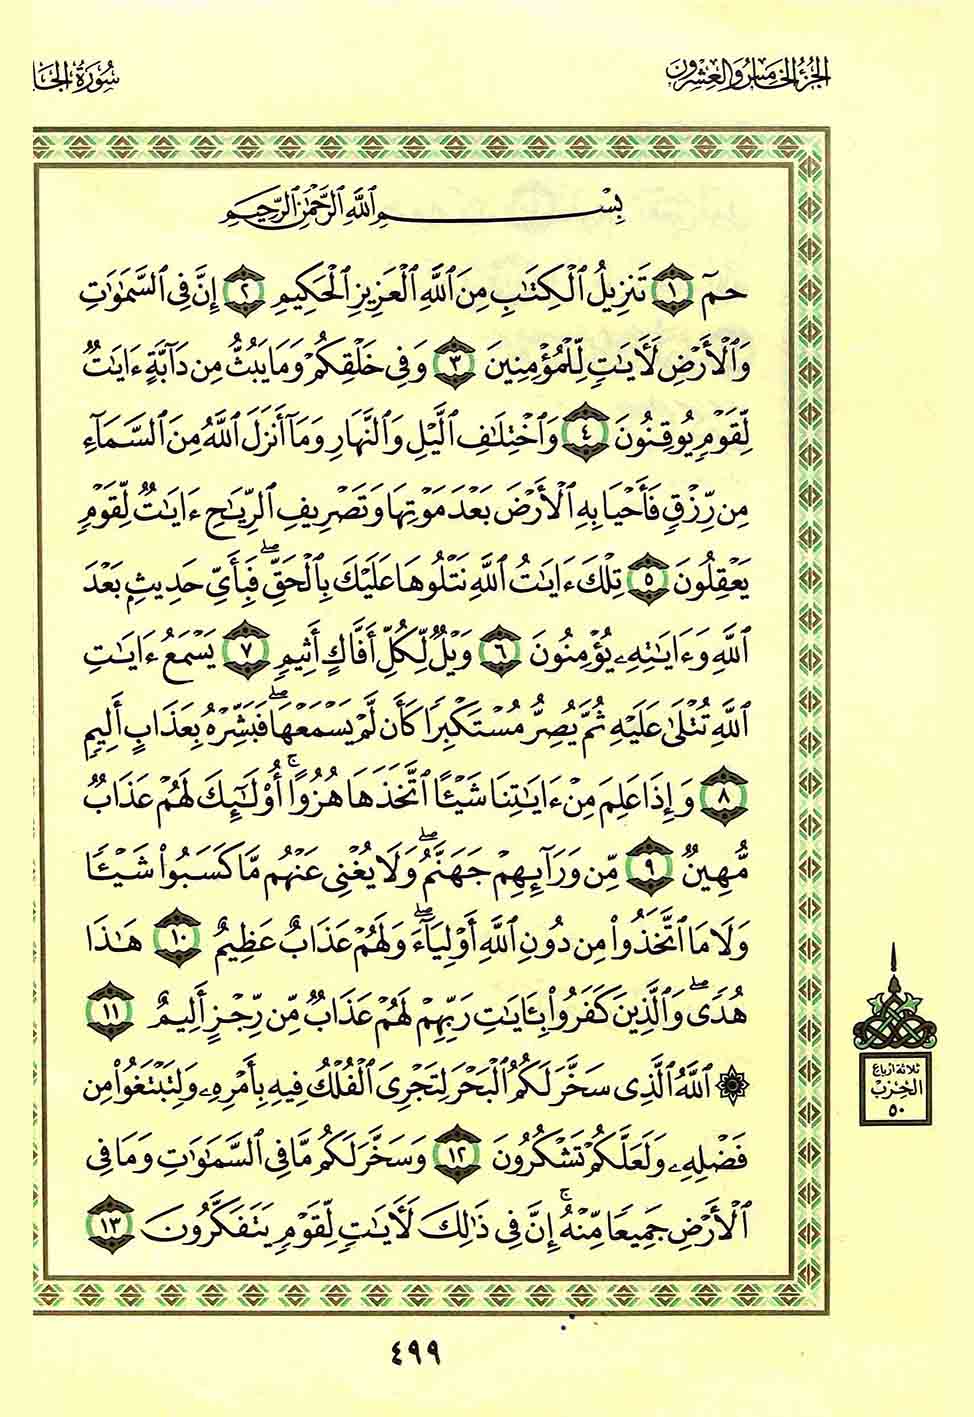 الجزء الخامس والعشرون
سورة الجا
بِسْمِ ٱللَّهِ ٱلرَّحْمَٰنِ ٱلرَّحِيمِ
حمٓ ١ تَنزِيلُ ٱلْكِتَٰبِ مِنَ ٱللَّهِ ٱلْعَزِيزِ ٱلْحَكِيمِ ٢ إِنَّ فِى ٱلسَّمَٰوَٰتِ
وَٱلْأَرْضِ لَءَايَٰتٍ لِّلْمُؤْمِنِينَ ٣ وَفِى خَلْقِكُمْ وَمَا يَبُثُّ مِن دَآبَّةٍ ءَايَٰتٌ
لِّقَوْمٍ يُوقِنُونَ ٤ وَٱخْتِلَٰفِ ٱلَّيْلِ وَٱلنَّهَارِ وَمَآ أَنزَلَ ٱللَّهُ مِنَ ٱلسَّمَآءِ
مِن رِّزْقٍ فَأَحْيَا بِهِ ٱلْأَرْضَ بَعْدَ مَوْتِهَا وَتَصْرِيفِ ٱلرِّيَٰحِ ءَايَٰتٌ لِّقَوْمٍ
يَعْقِلُونَ ٥ تِلْكَ ءَايَٰتُ ٱللَّهِ نَتْلُوهَا عَلَيْكَ بِٱلْحَقِّ ۖ فَبِأَىِّ حَدِيثٍۭ بَعْدَ
ٱللَّهِ وَءَايَٰتِهِۦ يُؤْمِنُونَ ٦ وَيْلٌ لِّكُلِّ أَفَّاكٍ أَثِيمٍ ٧ يَسْمَعُ ءَايَٰتِ
ٱللَّهِ تُتْلَىٰ عَلَيْهِ ثُمَّ يُصِرُّ مُسْتَكْبِرًا كَأَن لَّمْ يَسْمَعْهَا ۖ فَبَشِّرْهُ بِعَذَابٍ أَلِيمٍ
٨ وَإِذَا عَلِمَ مِنْ ءَايَٰتِنَا شَيْـًٔا ٱتَّخَذَهَا هُزُوًا ۚ أُو۟لَٰٓئِكَ لَهُمْ عَذَابٌ
مُّهِينٌ ٩ مِّن وَرَآئِهِمْ جَهَنَّمُ ۖ وَلَا يُغْنِى عَنْهُم مَّا كَسَبُوا۟ شَيْـًٔا
وَلَا مَا ٱتَّخَذُوا۟ مِن دُونِ ٱللَّهِ أَوْلِيَآءَ ۖ وَلَهُمْ عَذَابٌ عَظِيمٌ ١٠ هَٰذَا
هُدًى ۖ وَٱلَّذِينَ كَفَرُوا۟ بِـَٔايَٰتِ رَبِّهِمْ لَهُمْ عَذَابٌ مِّن رِّجْزٍ أَلِيمٌ ١١
۞ ٱللَّهُ ٱلَّذِى سَخَّرَ لَكُمُ ٱلْبَحْرَ لِتَجْرِىَ ٱلْفُلْكُ فِيهِ بِأَمْرِهِۦ وَلِتَبْتَغُوا۟ مِن
فَضْلِهِۦ وَلَعَلَّكُمْ تَشْكُرُونَ ١٢ وَسَخَّرَ لَكُم مَّا فِى ٱلسَّمَٰوَٰتِ وَمَا فِى
ٱلْأَرْضِ جَمِيعًا مِّنْهُ ۚ إِنَّ فِى ذَٰلِكَ لَءَايَٰتٍ لِّقَوْمٍ يَتَفَكَّرُونَ ١٣
ثلاثة أرباع
الحزب
٥٠
٤٩٩